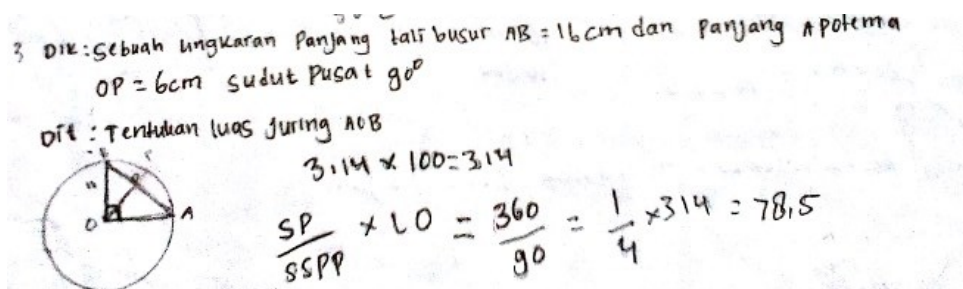 3 Dik : Sebuah lingkaran Panjang tali busur AB = 16 cm dan Panjang Apotema
OP = 6cm sudut Pusat 90°
Dit : Tentukan luas Juring AOB
3,14 × 100 = 314
O A
SP/SSPP × LO = 360/90 = 1/4 × 314 = 78,5